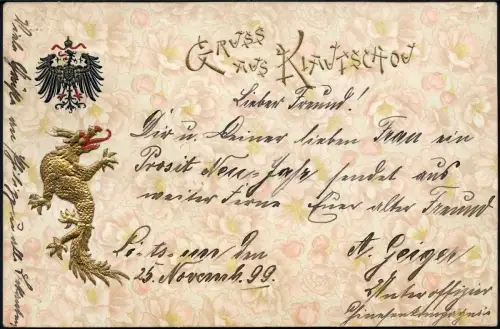 Gruss
aus Kiautschou
Lieber Freund!
Dir u. Deiner lieben Frau ein
Prosit Neu-Jahr sendet aus
weiter Ferne Euer alter Freund
den
A. Geiger
25. Novemb. 99.
Unteroffizier
Chinesenkompagnie
Viele Grüße an u. alle